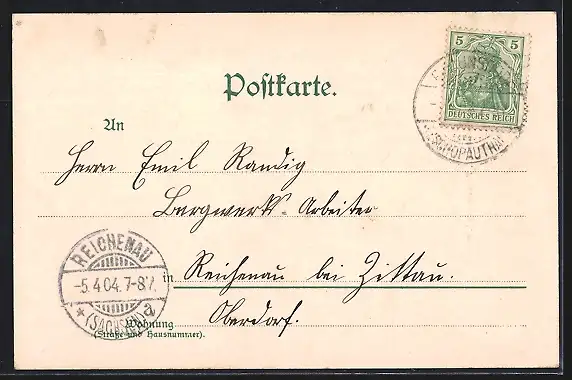 Postkarte.
5 5
DEUTSCHES REICH
An
Herrn Emil Randig
Bergwerks-Arbeiter
in Reichenau bei Zittau.
Oberdorf.
Wohnung
(Straße und Hausnummer).
REICHENAU
-5.4.04.7-8V.
* (SACHSEN) a